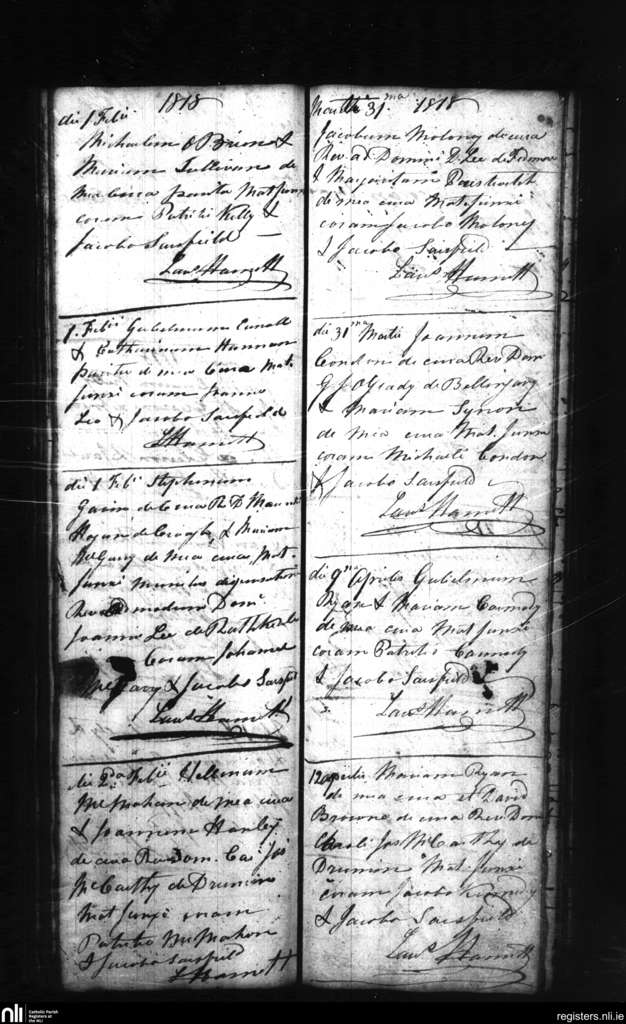 1818
die 1 Febii
Michaelem O Brien &
Mariam Sullivan de
mea cura
coram Patritii Kelly &
Jacobo Sarsfield
Lawe Harnett
1. Febii Gulielmum
& Catherinam Hannan
de mea Cura Mat.
Junxi coram
Leo & Jacobo Sarsfield
L Harnett
die 1 Febii Stephenum
de Cura Rd D
Hogan de & Mariam
McGary de mea cura Mat.
Junxi
Revd admodum Domi
Joannis Lee de Rathkeale
Coram Johanne
McGary & Jacobo Sarsfield
Lawe Harnett
die 2da Febii Hellenam
McMahon de mea cura
& Joannem Hanley
de cura Rev Dom. Jos
McCarthy de Drumin
Mat Junxi coram
Patritio McMahon
& Jacobo Sarsfield
L Harnett
Martii 31.ma 1818
Jacobum Moloney de cura
Revd Domini D. Lee de
& Margaritam
de mea cura Mat. Junxi
coram Jacobo Moloney
& Jacobo Sarsfield
Lawe Harnett
die 31ma Martii Joannem
Condon de cura Rev Dom
O'Grady de
& Mariam Synon
de mea cura Mat. Junxi
coram Michaeli Condon
& Jacobo Sarsfield
Lawe Harnett
die 9na Aprilis Gulielmum
Ryan & Mariam Carmody
de mea cura Mat Junxi
coram Patritii Carmody
& Jacobo Sarsfield
Lawe Harnett
12 Aprilis Mariam Ryan
de mea cura et David
Browne de cura Rev Dom
Jos McCarthy de
Drumin Mat. Junxi
coram Jacobo
& Jacobo Sarsfield
Lawe Harnett
nli
Catholic Parish
Registers at
the NLI
registers.nli.ie